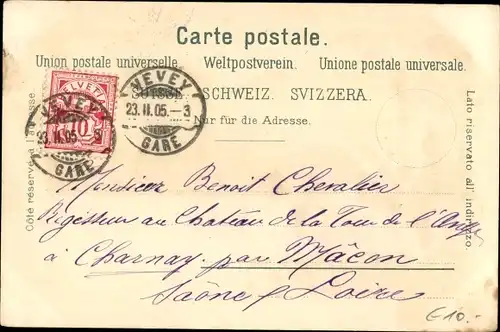 Carte postale.
Union postale universelle. Weltpostverein. Unione postale universale.
SUISSE. SCHWEIZ. SVIZZERA.
Nur für die Adresse.
Côté réservé à l'adresse.
Lato riservato all' indirizzo.
HELVETIA
10
VEVEY
23.II.05.-3
GARE
VEVEY
23.II.05.-3
GARE
Monsieur Benoit Chevalier
Régisseur au Château de la Tour de l'Ange
à Charnay par Mâcon
Saône & Loire
€10.-